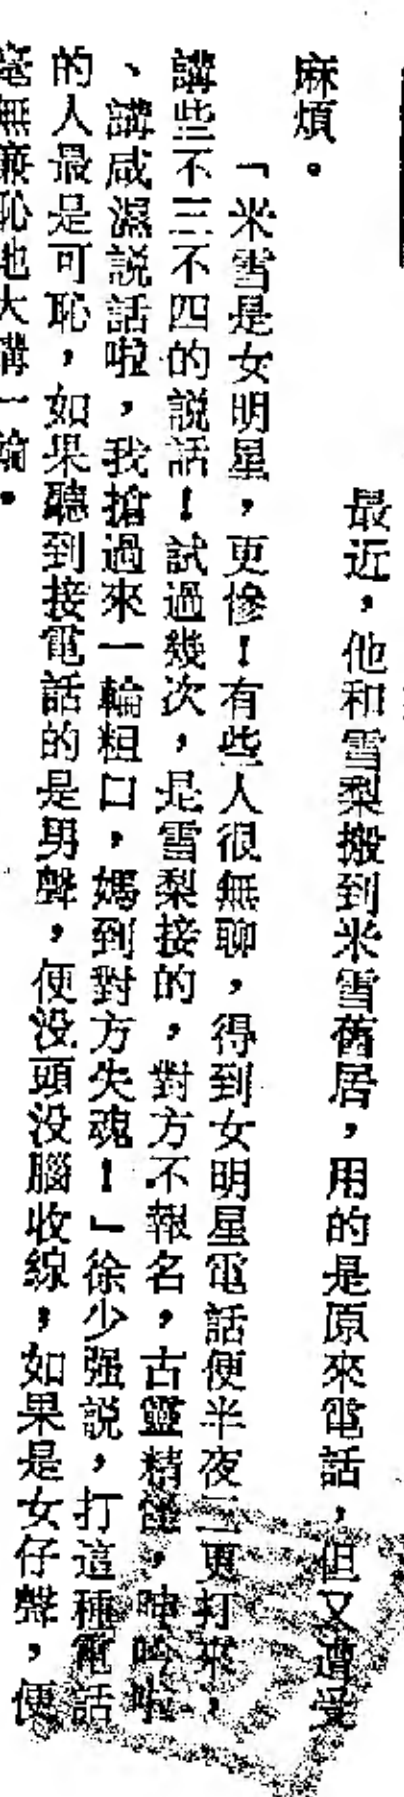 最近，他和雪梨搬到米雪舊居，用的是原來電話，但又遭受
麻煩。
「米雪是女明星，更慘！有些人很無聊，得到女明星電話便半夜三更打來，
講些不三不四的説話！試過幾次，是雪梨接的，對方不報名，古靈精怪，呻吟啦
、講咸濕説話啦，我搶過來一輪粗口，媽到對方失魂！」徐少强説，打這種電話
的人最是可恥，如果聽到接電話的是男聲，便没頭没腦收線，如果是女仔聲，便
毫無廉恥地大講一輪。